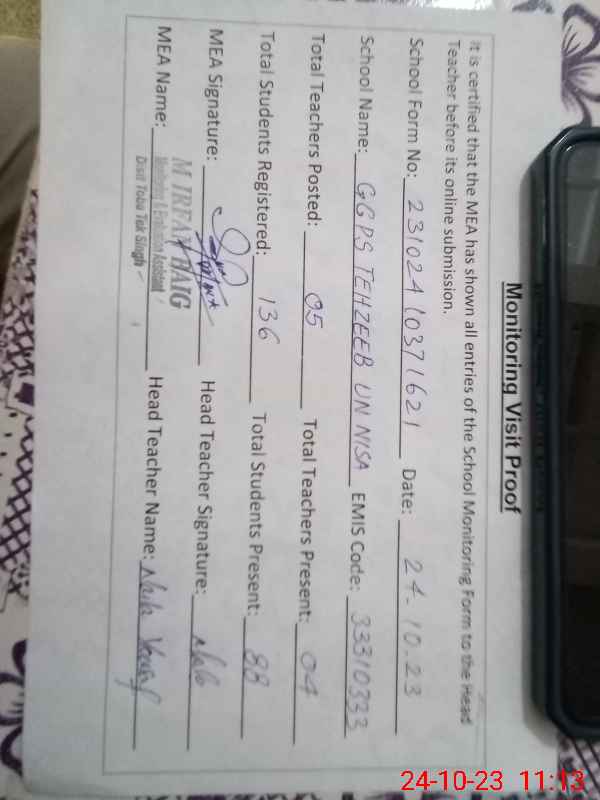 Monitoring Visit Proof
It is certified that the MEA has shown all entries of the School Monitoring Form to the Head
Teacher before its online submission.
School Form No: 231024 10371621 Date: 24-10-23
School Name: GGPS TEHZEEB UN NISA EMIS Code: 33310333
Total Teachers Posted: 05 Total Teachers Present: 04
Total Students Registered: 136 Total Students Present: 88
MEA Signature: Head Teacher Signature: Naila
MEA Name: M IRFAN BAIG Head Teacher Name: Naila
Monitoring & Evaluation Assistant
Distt Toba Tek Singh
24-10-23 11:13